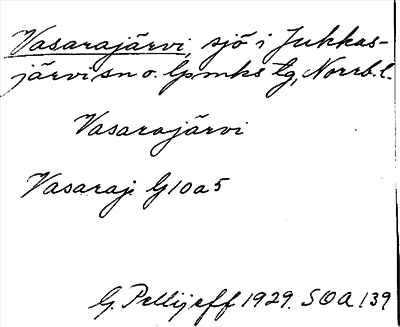 Vasarajärvi, sjö i Jukkas-
järvi sn o. lpmks tg, Norrb. l.
Vasarajärvi
Vasaraj. G10a5
G. Pellijeff 1929. SOA 139